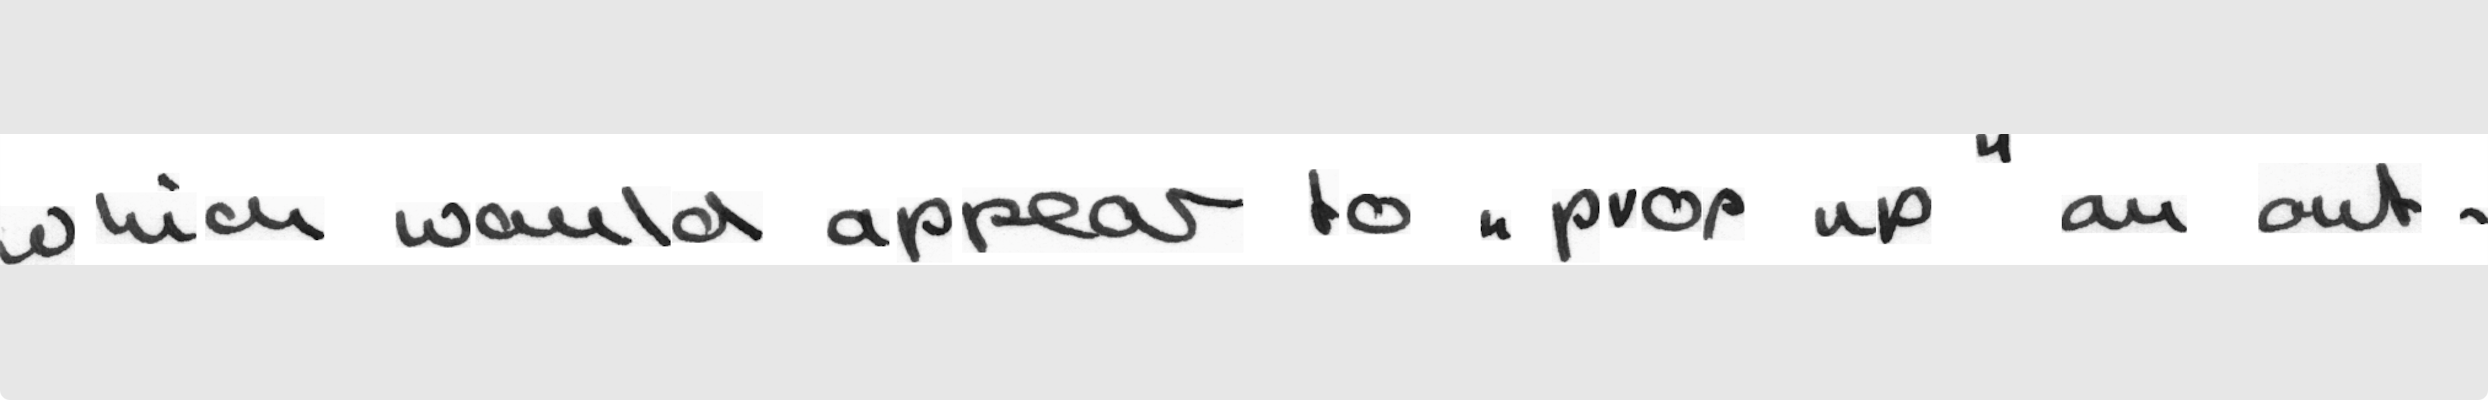 which would appear to „prop up" an out-